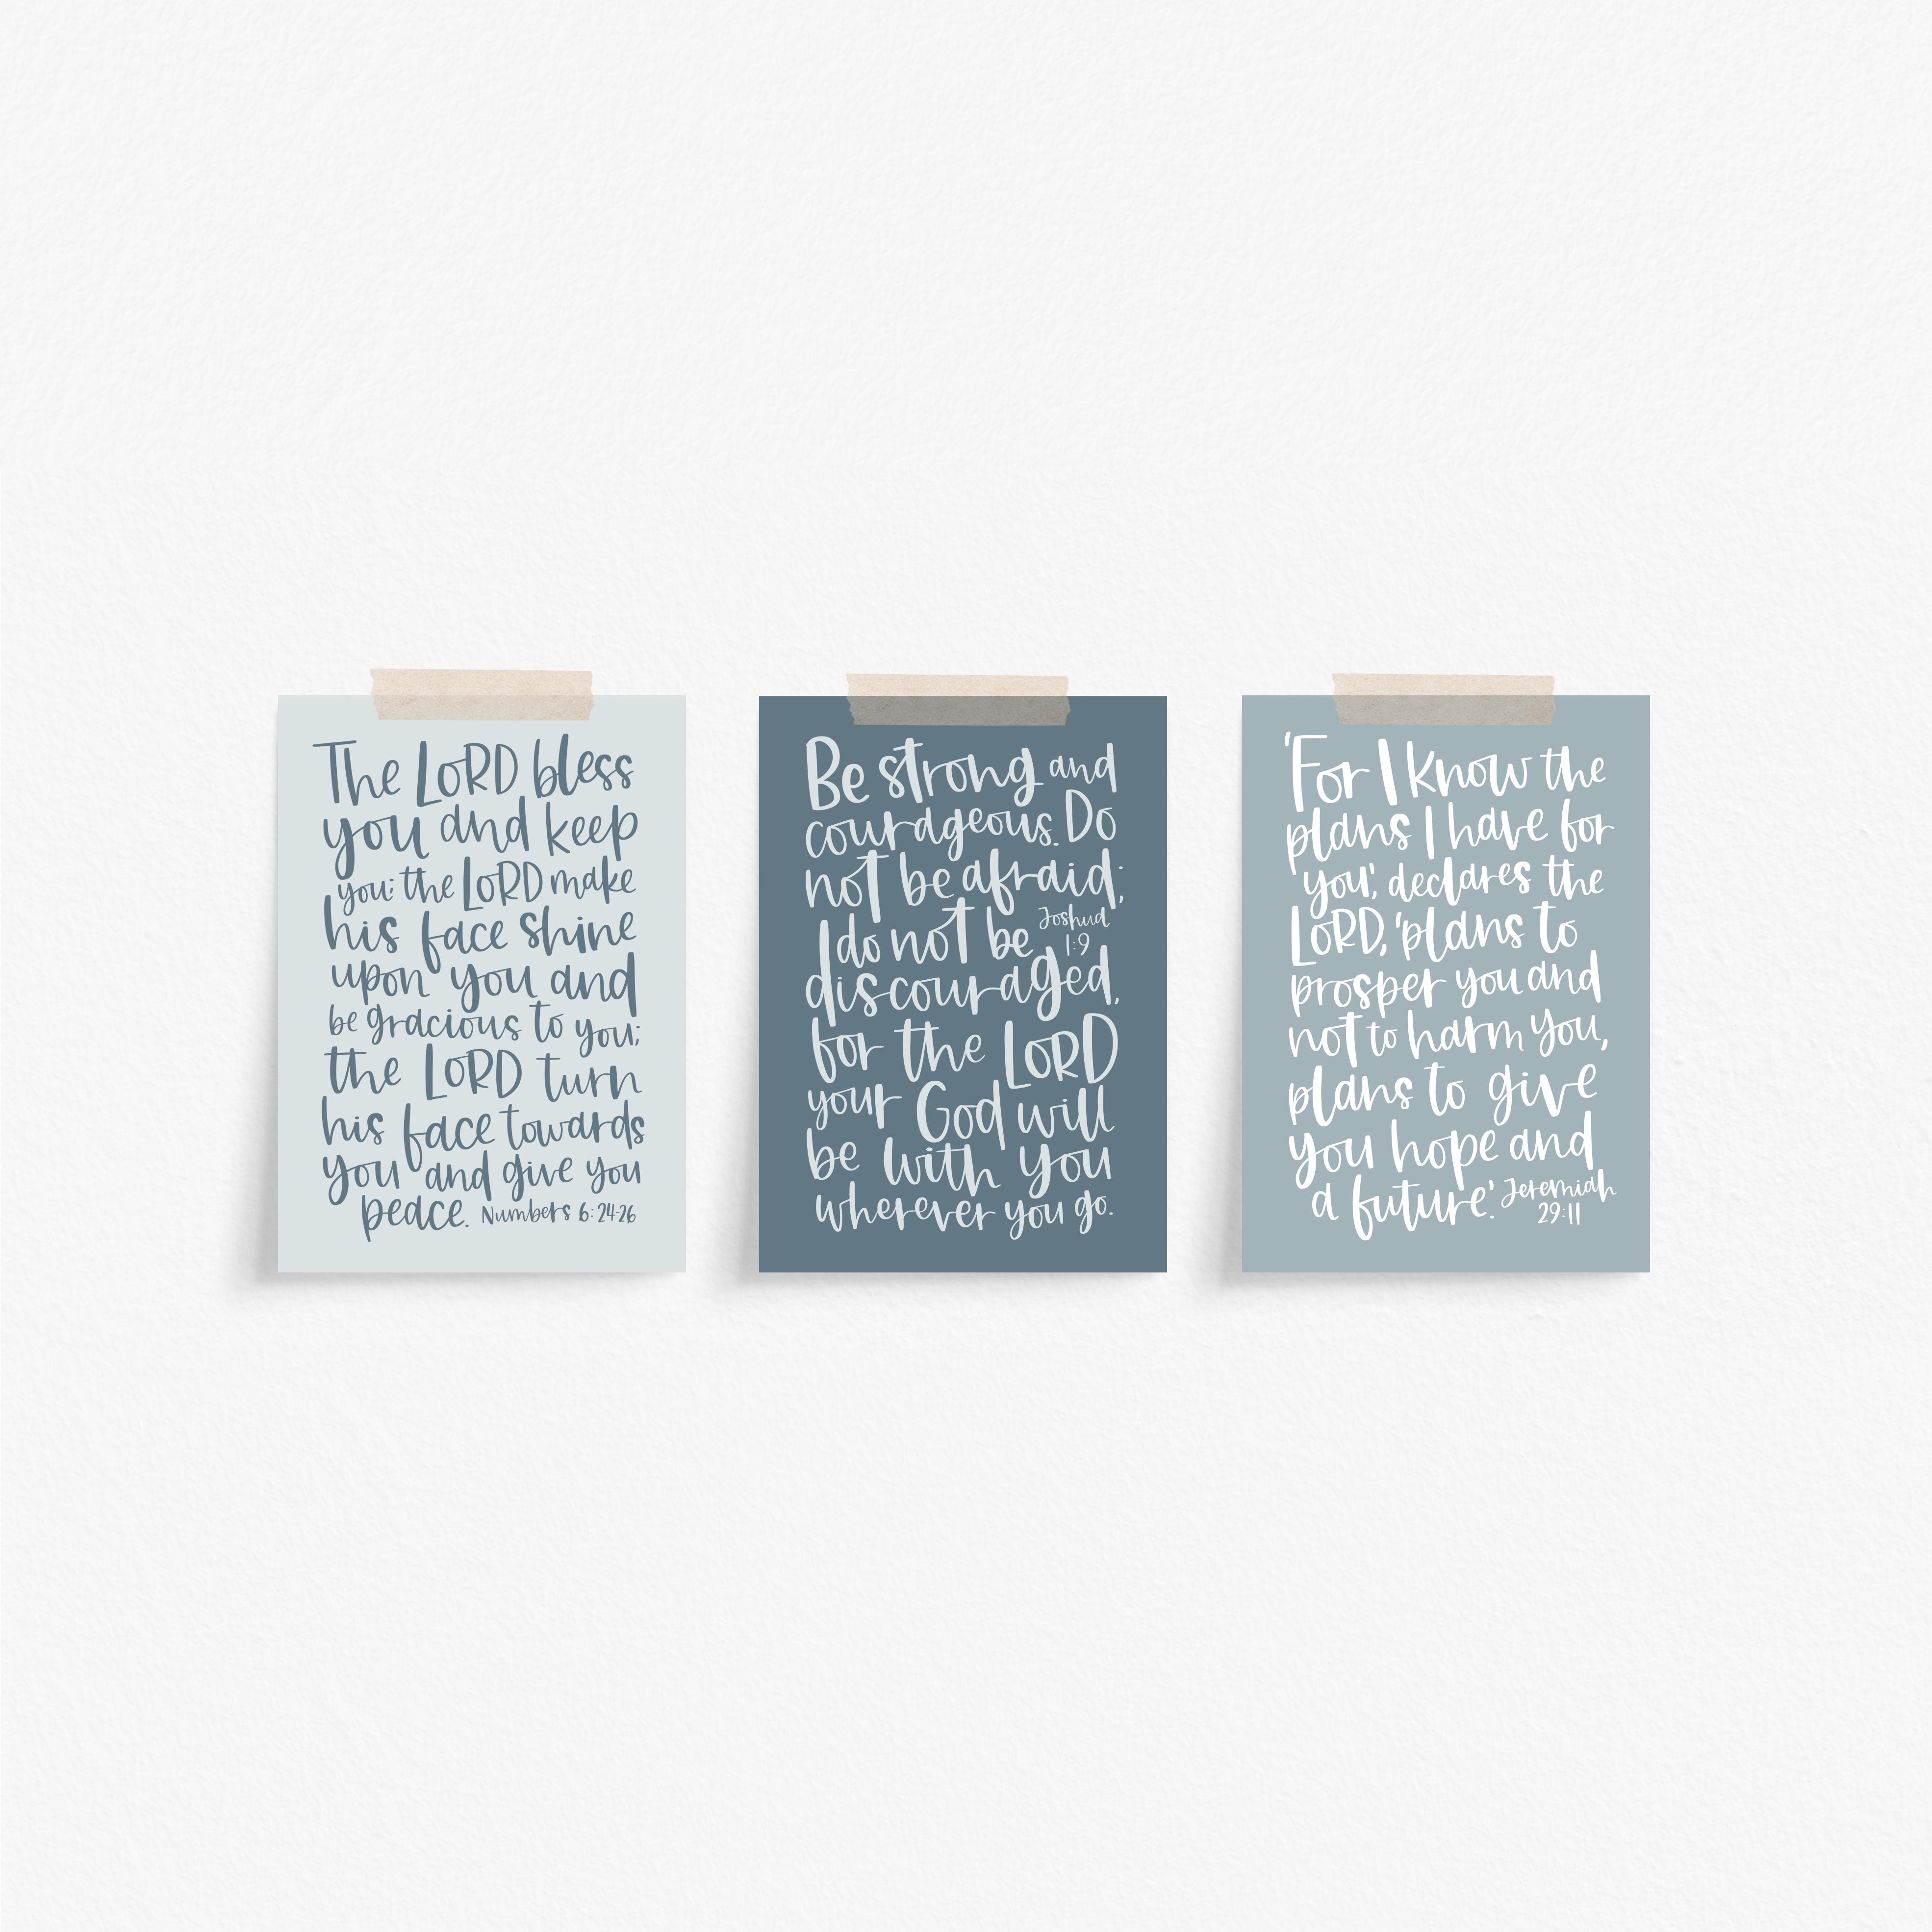 The LORD bless
you and keep
you; the LORD make
his face shine
upon you and
be gracious to you;
the LORD turn
his face towards
you and give you
peace. Numbers 6:24-26
Be strong and
courageous. Do
not be afraid;
do not be Joshua 1:9
discouraged,
for the LORD
your God will
be with you
wherever you go.
'For I know the
plans I have for
you', declares the
LORD, 'plans to
prosper you and
not to harm you,
plans to give
you hope and
a future.' Jeremiah 29:11